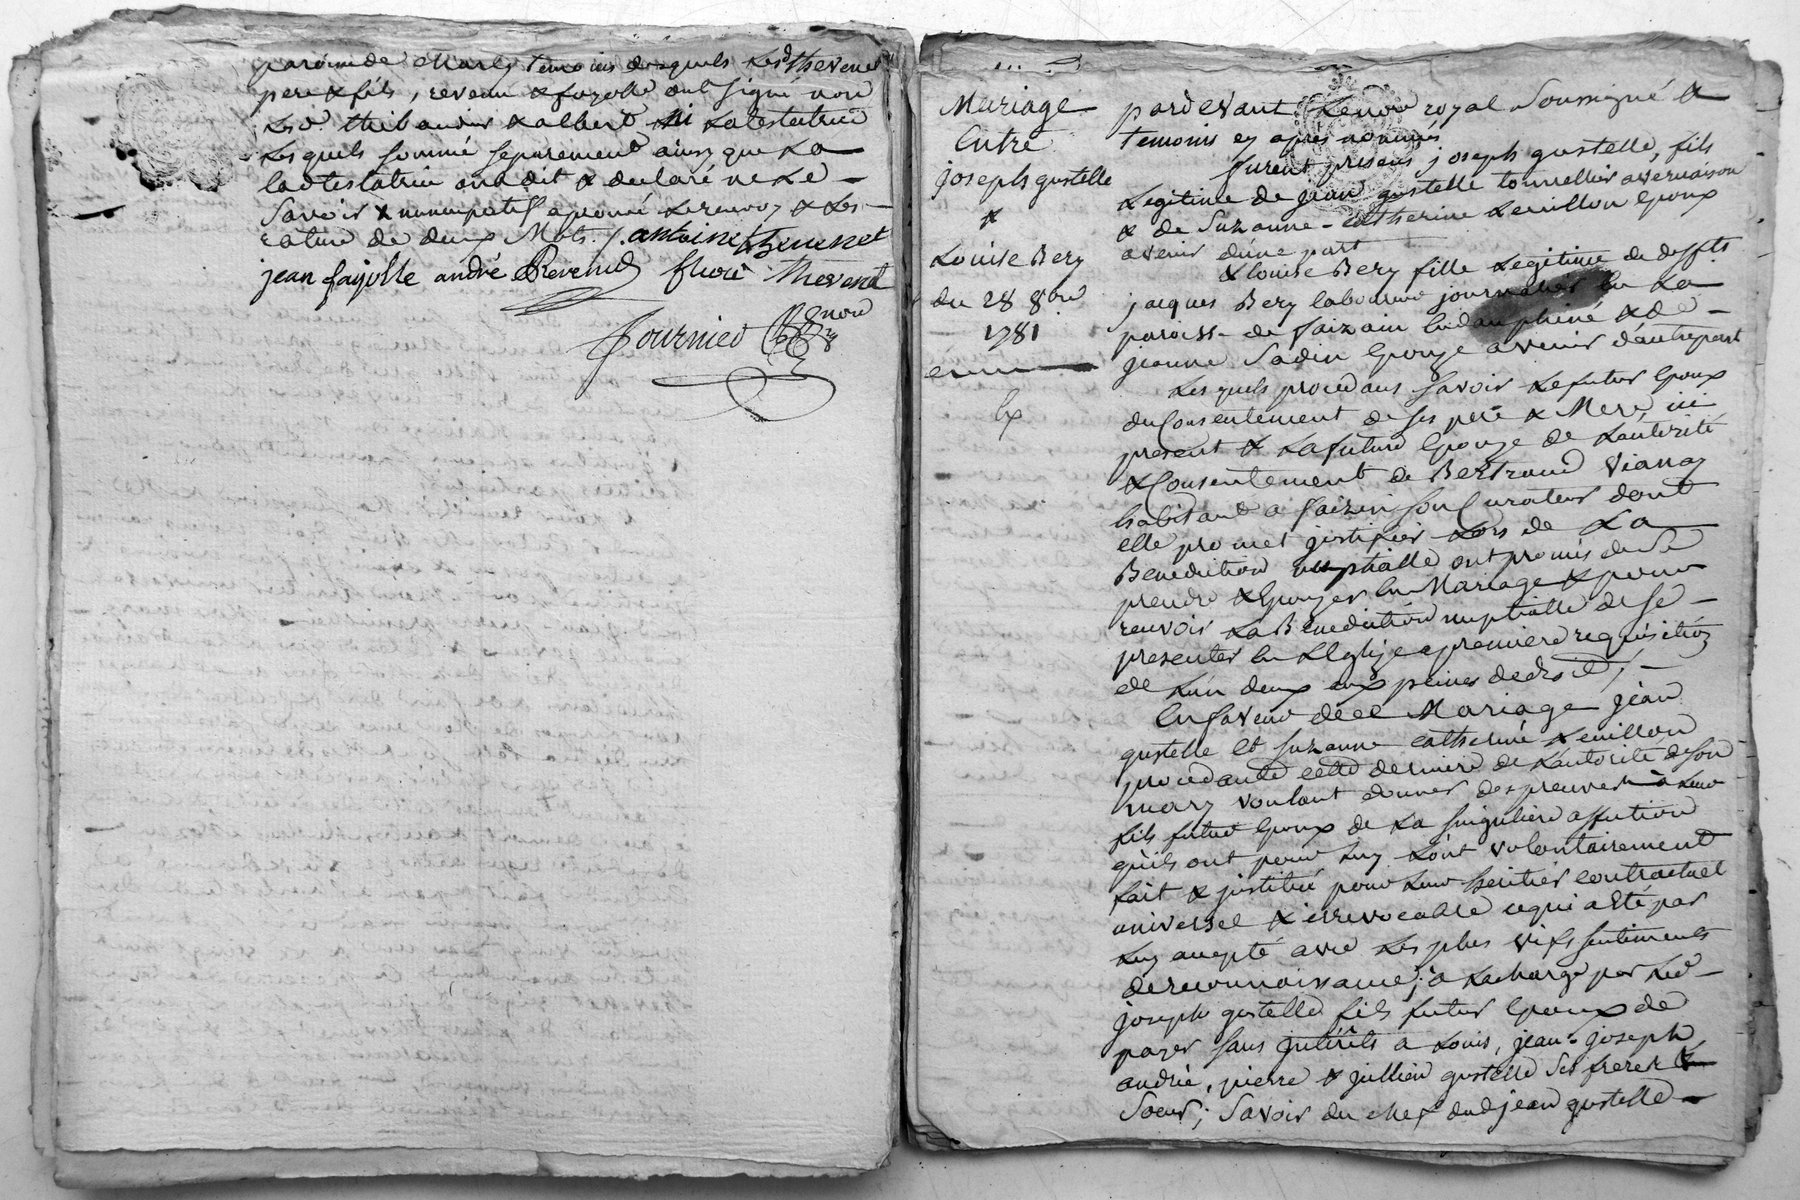 paroisse de Marly temoins desquels Led thevenet
pere & fils, reveud & fayolle ont signé non
Les d. thibaudier & albert Ni La testatrice
Les quels sommé separement ainsy que La
Ladtestatrice ont dit & declaré ne Le
Savoir & nuncupatif aprouvé Le renvoy & Les
rature de deux Mots ./. antoine thevenet
jean fayolle andré Reveud fleurie thevenet
fournier nore
Mariage
Entre
joseph gustelle
&
Louise Bery
du 28 8bre
1781
Ex
pardevant Le nore royal Soussigné &
temoins cy apres nommés
furent presens joseph gustelle, fils
Legitime de jean gustelle tonnellier a vernaison
& de Suzanne catherine Levillon Epoux
avenir dune part
& Louise Bery fille Legitime de deffts
jacques Bery laboureur journalier En La
paroiss- de faizain En dauphiné & de
jeanne Sadin Epouze avenir dautrepart
Lesquels procedans Savoir Le futur Epoux
du Consentement de Ses pere & Mere, ici
present & La future Epouze de Lautorité
& Consentement de Bertrand Vianay
habitant a faizin son Curateur dont
elle promet justifier Lors de La
Benediction nuptialle ont promis de Se
prendre & Epouzer En Mariage & pour
recevoir La Benediction nuptialle de Se
presenter En LEglize a premiere requisition
de Lun deux aux peines de droit /.
En faveur de ce Mariage jean
gustelle et Suzanne catherine Levillon
procedante cette derniere de Lautorité de Son
mary voulant donner des preuves à Leur
fils futur Epoux de La singuliere affection
qu'ils ont pour Luy Lont volontairement
fait & jnstitué pour Leur heritier contractuel
universel & irrevocable cequi a Eté par
Luy accepté avec Les plus vifs sentiments
de reconnoissance; à La charge par Led
joseph gustelle fils futur Epoux de
payer sans jnterêts a Louis, jean-joseph
andrée, pierre & jullien gustelle Ses freres &
Soeur; Savoir du chef dud jean gustelle